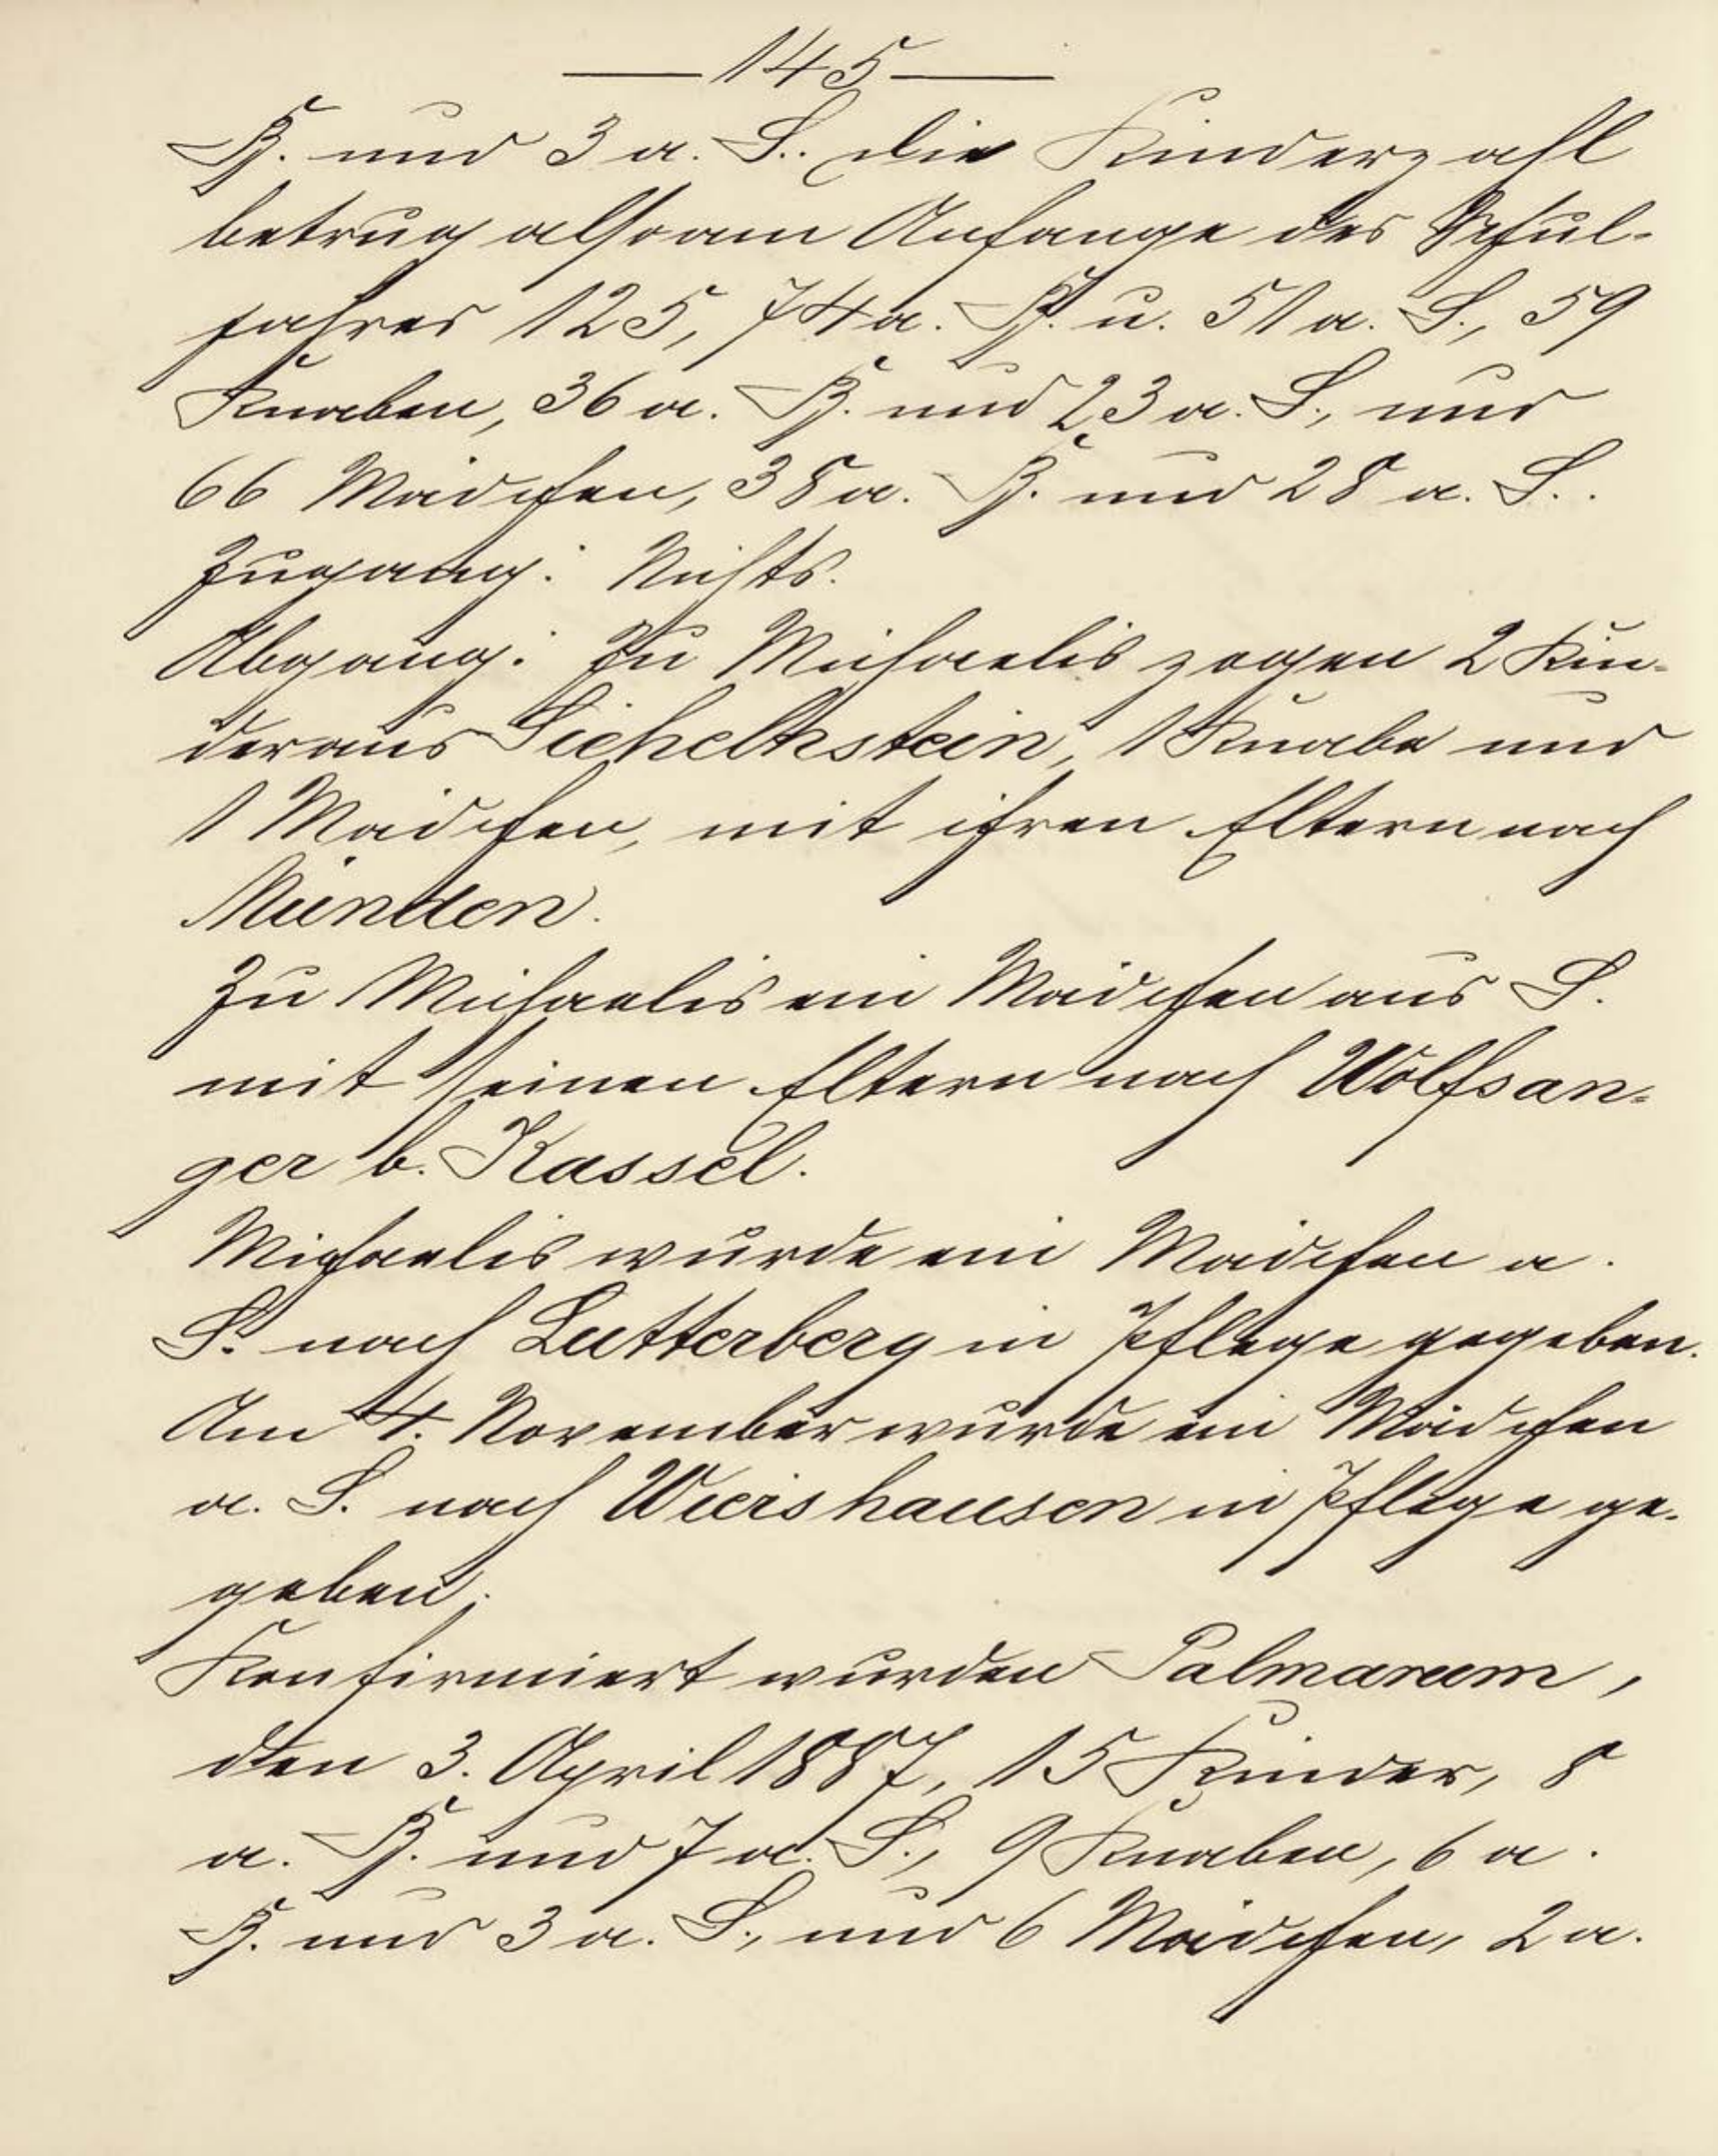 — 145 —
B. und 3 a. S.. Die Kinderzahl
betrug also am Anfange des Schul-
jahres 125, 74 a. B. u. 51 a. S., 59
Knaben, 36 a. B. und 23 a. S., und
66 Mädchen, 38 a. B. und 28 a. S..
Zugang: Nichts.
Abgang: Zu Michaelis zogen 2 Kin-
der aus Sichelnstein, 1 Knabe und
1 Mädchen, mit ihren Eltern nach
Münden.
Zu Michaelis ein Mädchen aus S.
mit seinen Eltern nach Wolfsan-
ger b. Kassel.
Michaelis wurde ein Mädchen a.
S. nach Lutterberg in Pflege gegeben.
Am 4. November wurde ein Mädchen
a. S. nach Wiershausen in Pflege ge-
geben.
Konfirmiert wurden Palmarum,
den 3. April 1887, 15 Kinder, 8
a. B. und 7 a. S., 9 Knaben, 6 a.
B. und 3 a. S., und 6 Mädchen, 2 a.